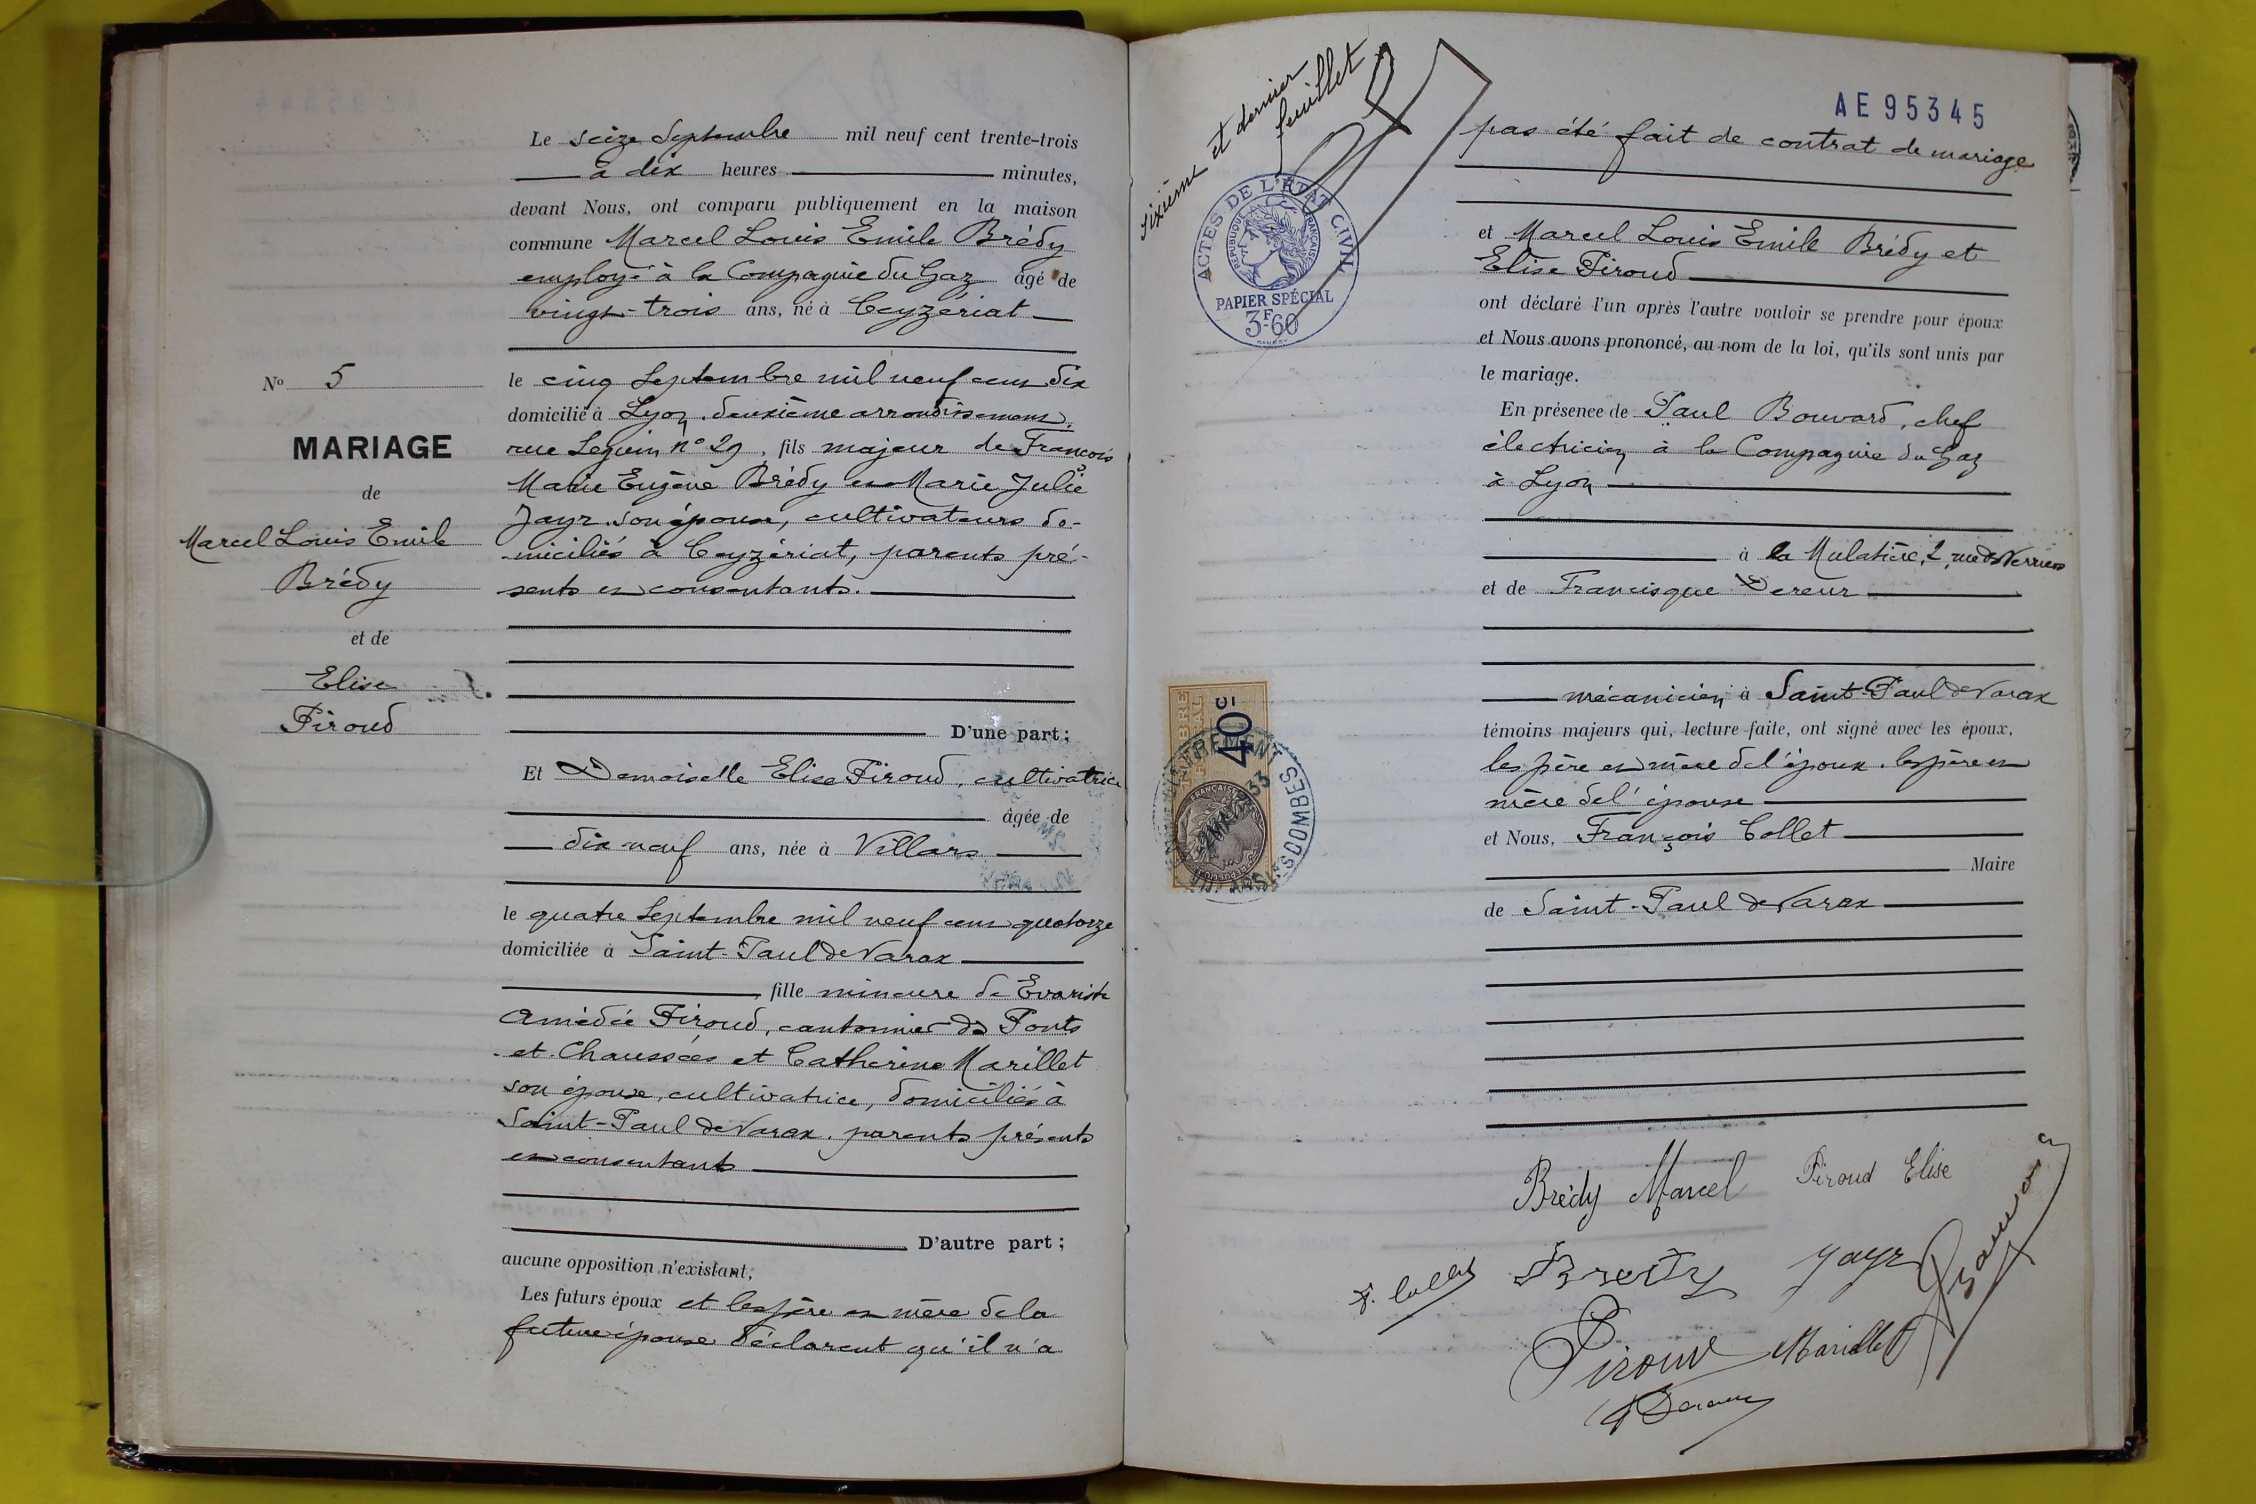 Le seize Septembre mil neuf cent trente-trois
à dix heures minutes,
devant Nous, ont comparu publiquement en la maison
commune Marcel Louis Emile Brédy
employé à la Compagnie du Gaz âgé de
vingt-trois ans, né à Ceyzériat
le cinq Septembre mil neuf cent dix
domicilié à Lyon, deuxième arrondissement,
rue Seguin n° 29, fils majeur de François
Marie Eugène Brédy et Marie Julie
Jayr son épouse, cultivateurs do-
miciliés à Ceyzériat, parents pré-
sents et consentants.
D'une part;
Et Demoiselle Elise Piroud, cultivatrice
âgée de
dix neuf ans, née à Villars
le quatre Septembre mil neuf cent quatorze
domiciliée à Saint-Paul de Varax
fille mineure de Evariste
Amédée Piroud, cantonnier des Ponts
et Chaussées et Catherine Marillet
son épouse, cultivatrice, domiciliés à
Saint-Paul de Varax, parents présents
et consentants
D'autre part;
aucune opposition n'existant,
Les futurs époux et les père et mère de la
future épouse déclarent qu'il n'a
No 5
MARIAGE
de
Marcel Louis Emile
Brédy
et de
Elise
Piroud
sixième et dernier
feuillet
ACTES DE L'ÉTAT CIVIL
RÉPUBLIQUE FRANÇAISE
PAPIER SPÉCIAL
3F.60
40c
AE 95345
pas été fait de contrat de mariage
et Marcel Louis Emile Brédy et
Elise Piroud
ont déclaré l'un après l'autre vouloir se prendre pour époux
et Nous avons prononcé, au nom de la loi, qu'ils sont unis par
le mariage.
En présence de Paul Bouvard, chef
électricien à la Compagnie du Gaz
à Lyon
à la Mulatière, 2, rue des Verriers
et de Francisque Dereur
mécanicien à Saint-Paul de Varax
témoins majeurs qui, lecture faite, ont signé avec les époux,
les père et mère de l'époux, les père et
mère de l'épouse
et Nous, François Collet
Maire
de Saint-Paul de Varax
Brédy Marcel Piroud Elise
F. Collet Bredy Jayr
Piroud Marillet
Dereur